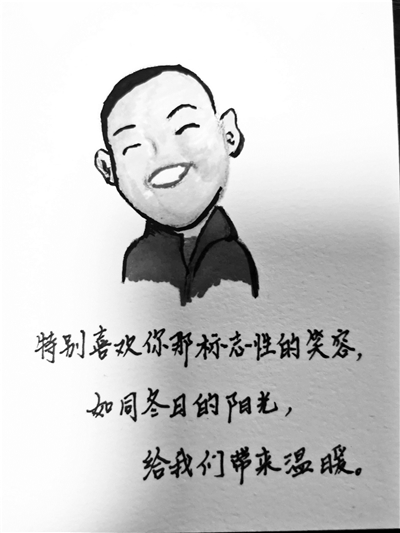 特别喜欢你那标志性的笑容，
如同冬日的阳光，
给我们带来温暖。